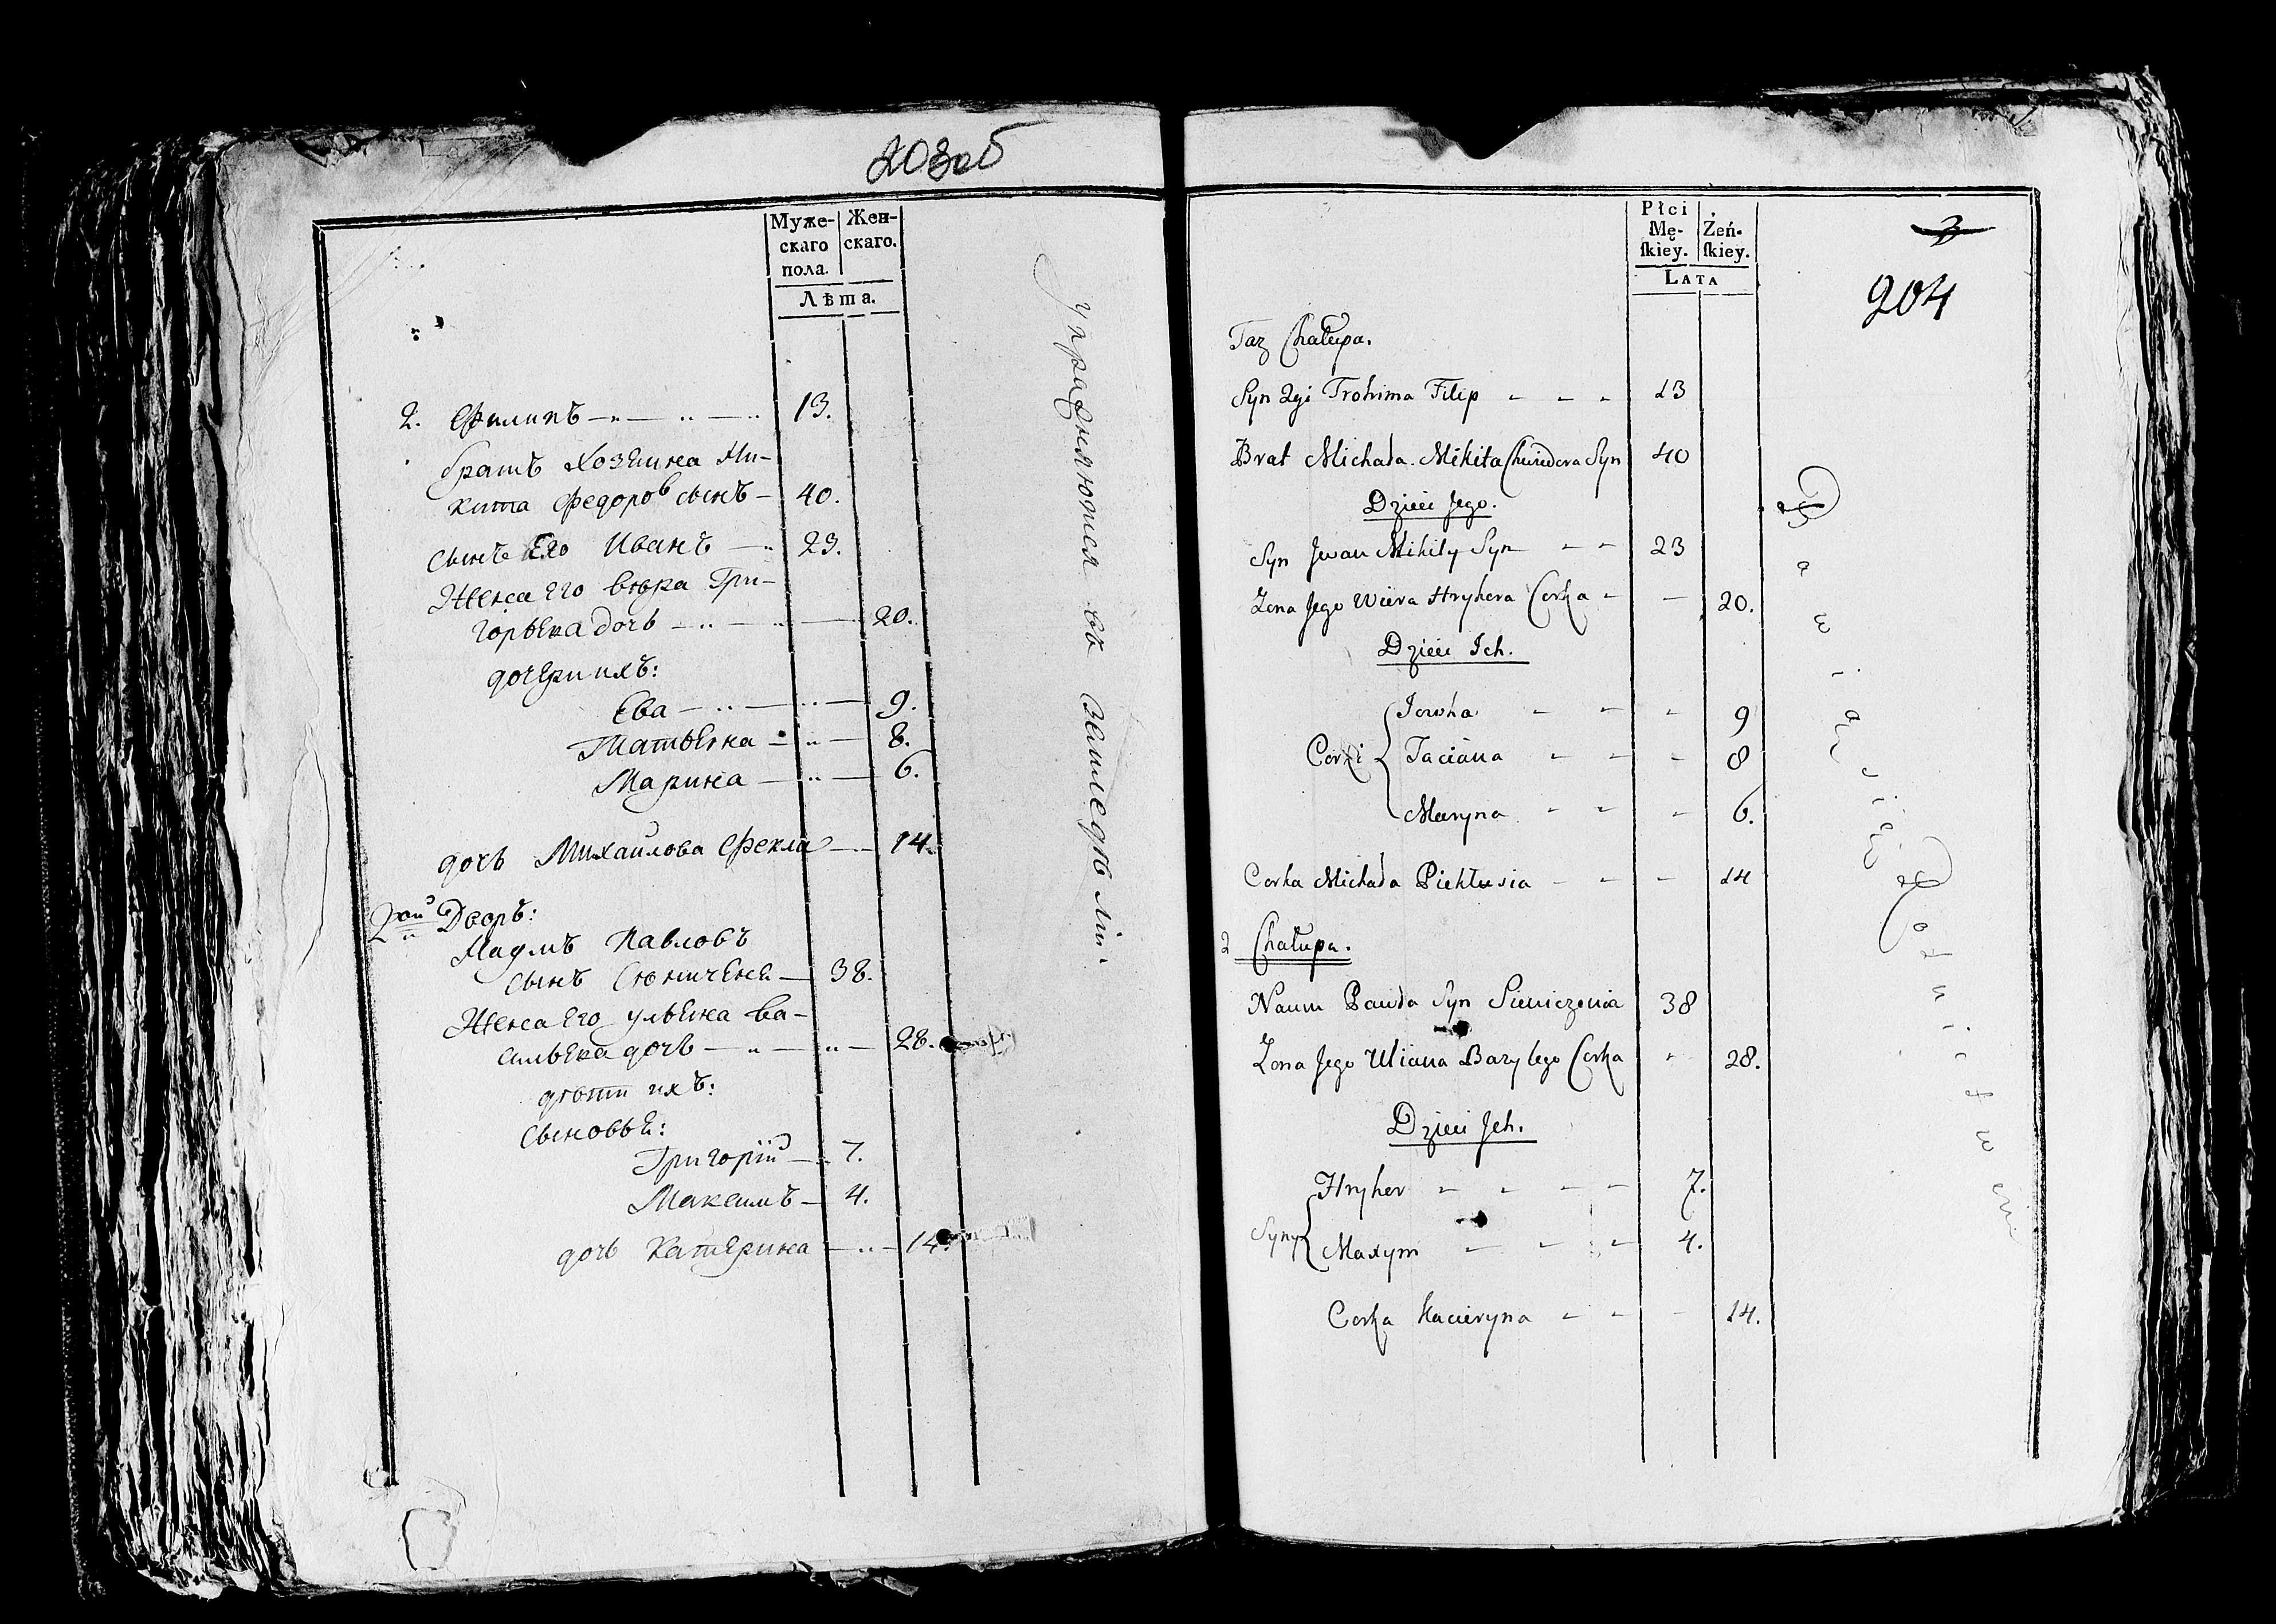 203об
Муже-
скаго
пола.
Жен-
скаго.
Лѣта.
2. Филипъ 13.
братъ Хозяина Ми-
кита Федоровъ сынъ 40.
сынъ Его Иванъ 23.
Жена его вѣра Гри-
горьева дочь 20.
дочери ихъ:
Ева 9.
Татьяна 8.
Марина 6.
дочь Михаилова Фекла 14.
2ой Дворъ:
Наумъ Павловъ
сынъ 38.
Жена Его ульяна ва-
сильева дочь 28.
дѣти ихъ:
сыновья:
Григорій 7.
Максимъ 4.
дочь Катерина 14.
упражняются въ Земледѣліи
Płci
Mę-
ſkiey.
Żeń-
ſkiey.
LATA
3
204
Taz Chałupa.
Syn 2gi Trohima Filip 13
Brat Michała Mikita Chwiedora Syn 40
Dzieci Jego.
Syn Jwan Mikity Syn 23
Zona Jego Wiera Hryhera Corka 20.
Dzieci Ich.
Corki
Jewha 9
Taciana 8
Maryna 6.
Corka Michała Piekłusia 14
2 Chałupa.
Naum Pawła Syn Sieniczenia 38
Zona Jego Uliana Bazylego Corka 28.
Dzieci Jch.
Syny
Hryher 7.
Maxym 4.
Corka Kacieryna 14.
Bawią się Rolnictwem